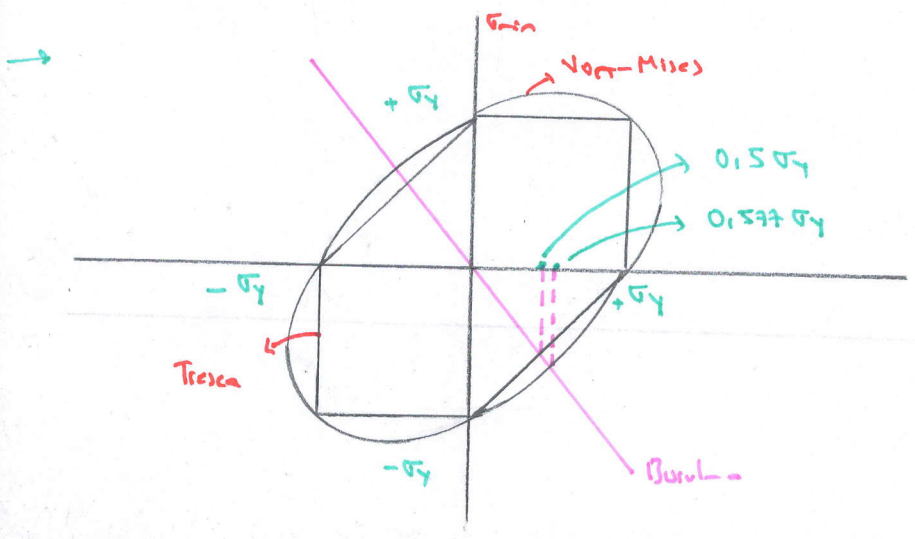 σmin
Von-Mises
+σy
0,5σy
0,577σy
-σy
+σy
Tresca
-σy